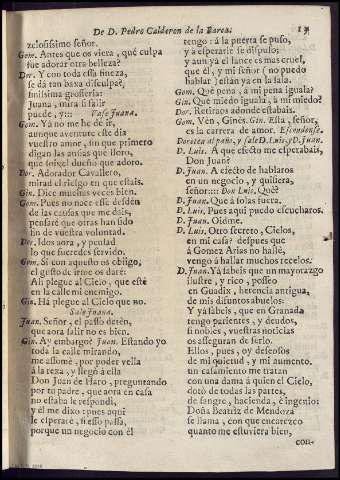 De D. Pedro Calderon de la Barca. 13
zelosissimo señor.
Gom. Antes que os viera, què culpa
fue adorar otra belleza?
Dor. Y con toda essa fineza,
se dà tan baxa disculpa?
finissima grosseria!
Juana, mira si salir
puede, y::: Vase Juana.
Gom. Yà no me hè de ir,
aunque aventure este dia
vuestro amire, sin que primero
digan las ansias que lloro,
que soy el dueño que adoro.
Dor. Adorador Cavallero,
mirad el riesgo en que estais.
Gin. Dice muchas veces bien.
Gom. Pues no nace esse desdèn
de las causas que me dais,
pensarè que otras han sido
hin de vuestra voluntad.
Dor. Idos aora, y pensad
lo que fueredes servido.
Gom. Si con aquesto os obligo,
el gusto de irme os darè:
Ali plegue al Cielo, que estè
en la calle mi enemigo.
Gin. Hà plegue al Cielo que no.
Sale Juana.
Juan. Señor, el passo detèn,
que aora salir no es bien.
Gin. Ay embargo? Juan. Estando yo
toda la calle mirando,
me assomè, por poder vella
à la rexa, y llegò à ella
Don Juan de Haro, preguntando
por tu padre, que aora en casa
no estaba le respondi,
y èl me dixo: pues aqui
le esperarè, si esso passa,
porque un negocio con èl
tengo: à la puerta se puso,
y à esperarle se dispuso;
y aun yà el lance es mas cruel,
que èl, y mi señor (no puedo
hablar) estàn yà en la sala.
Gom. Què pena, à mi pena iguala?
Gin. Què miedo iguala, à mi miedo?
Dor. Retiraos adonde estabais.
Gom. Vèn, Ginès. Gin. Esta, señor,
es la carrera de amor. Escondense.
Dorotea al paño, y sale D. Luis, y D. Juan.
D. Luis. A què efecto me esperabais,
Don Juan?
D. Juan. A efecto de hablaros
en un negocio, y quisiera,
señor:::: Don Luis. Què?
D. Juan. Que à solas fuera.
D. Luis. Pues aqui puedo escucharos.
D. Juan. Oidme.
D. Luis. Otro secreto, Cielos,
en mi casa? despues que
à Gomez Arias no hallè,
vengo à hallar muchos recelos.
D. Juan. Yà sabeis que un mayorazgo
ilustre, y rico, posseo
en Guadix, herencia antigua,
de mis difuntos abuelos:
Y yà sabeis, que en Granada
tengo parientes, y deudos,
si nobles, vuestras noticias
os asseguran de serlo.
Ellos, pues, oy deseosos
de mi quietud, y mi aumento,
un casamiento me tratan
con una dama à quien el Cielo,
dotò de todas las partes,
de sangre, hacienda, è ingenio:
Doña Beatriz de Mendoza
se llama, con que encarezco
quanto me estuviera bien,
con-